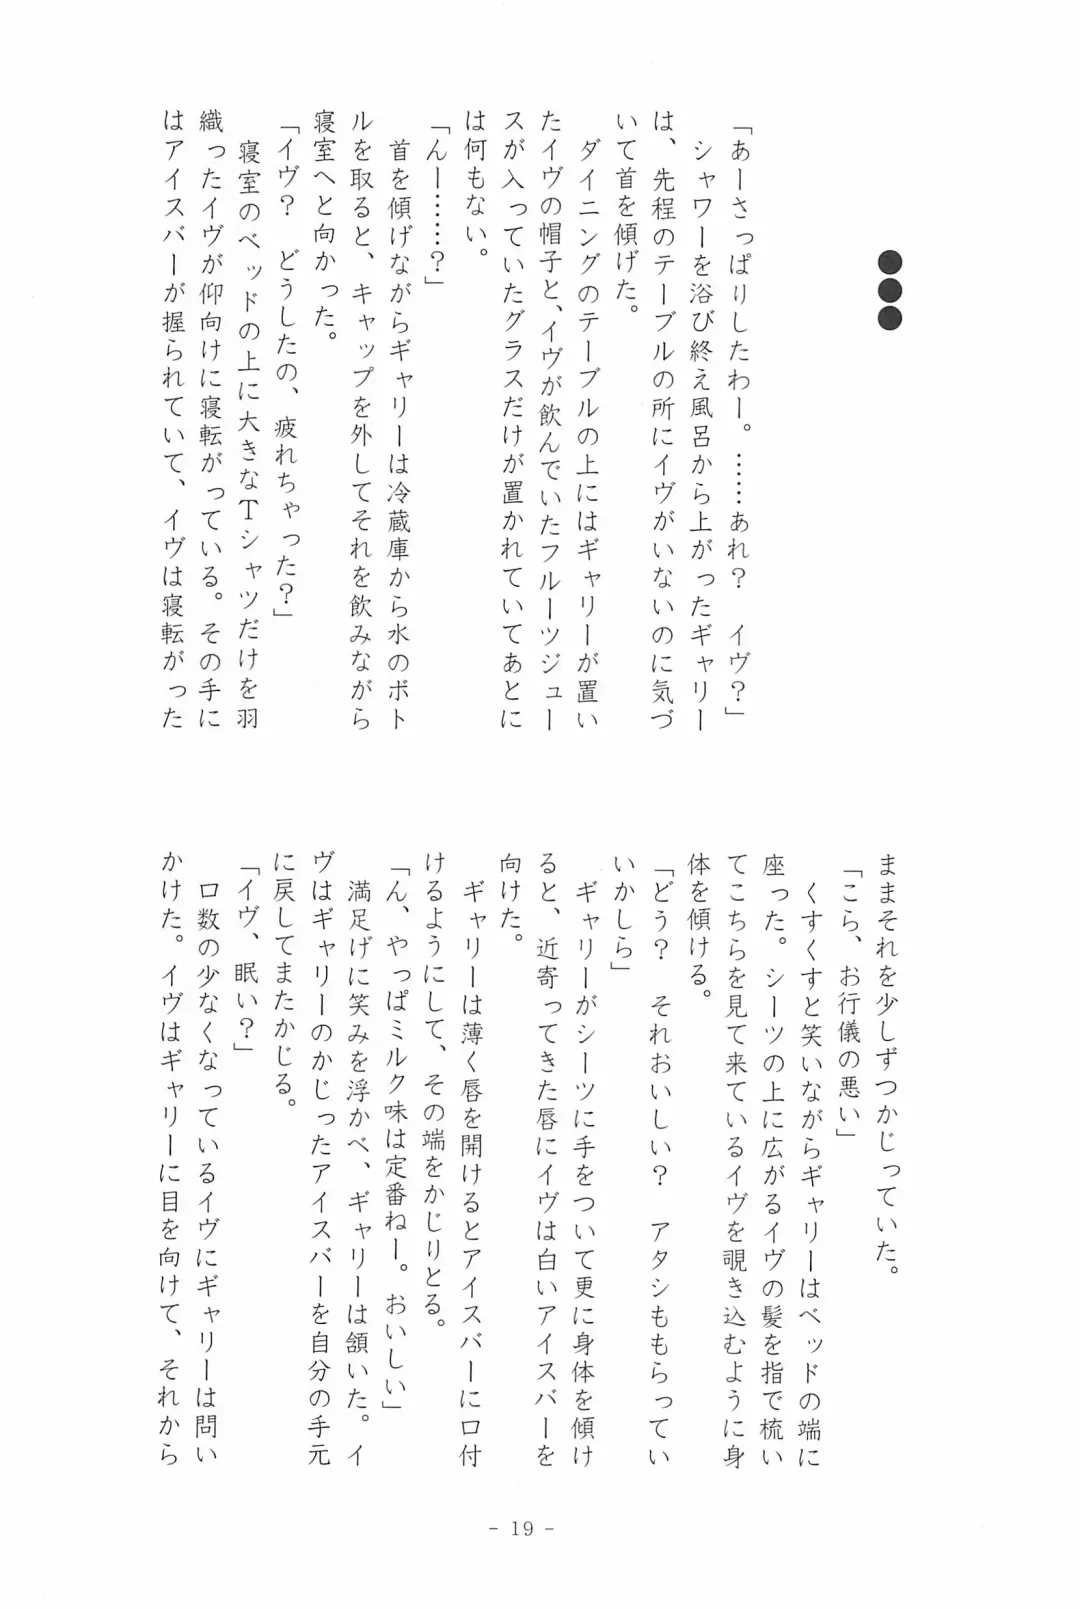 ●●●
「あーさっぱりしたわー。……あれ？　イヴ？」
　シャワーを浴び終え風呂から上がったギャリー
は、先程のテーブルの所にイヴがいないのに気づ
いて首を傾げた。
　ダイニングのテーブルの上にはギャリーが置い
たイヴの帽子と、イヴが飲んでいたフルーツジュー
スが入っていたグラスだけが置かれていてあとに
は何もない。
「んー……？」
　首を傾げながらギャリーは冷蔵庫から水のボト
ルを取ると、キャップを外してそれを飲みながら
寝室へと向かった。
「イヴ？　どうしたの、疲れちゃった？」
　寝室のベッドの上に大きなＴシャツだけを羽
織ったイヴが仰向けに寝転がっている。その手に
はアイスバーが握られていて、イヴは寝転がった
ままそれを少しずつかじっていた。
「こら、お行儀の悪い」
　くすくすと笑いながらギャリーはベッドの端に
座った。シーツの上に広がるイヴの髪を指で梳い
てこちらを見て来ているイヴを覗き込むように身
体を傾ける。
「どう？　それおいしい？　アタシももらってい
いかしら」
　ギャリーがシーツに手をついて更に身体を傾け
ると、近寄ってきた唇にイヴは白いアイスバーを
向けた。
　ギャリーは薄く唇を開けるとアイスバーに口付
けるようにして、その端をかじりとる。
「ん、やっぱミルク味は定番ねー。おいしい」
　満足げに笑みを浮かべ、ギャリーは頷いた。イ
ヴはギャリーのかじったアイスバーを自分の手元
に戻してまたかじる。
「イヴ、眠い？」
　口数の少なくなっているイヴにギャリーは問い
かけた。イヴはギャリーに目を向けて、それから
- 19 -